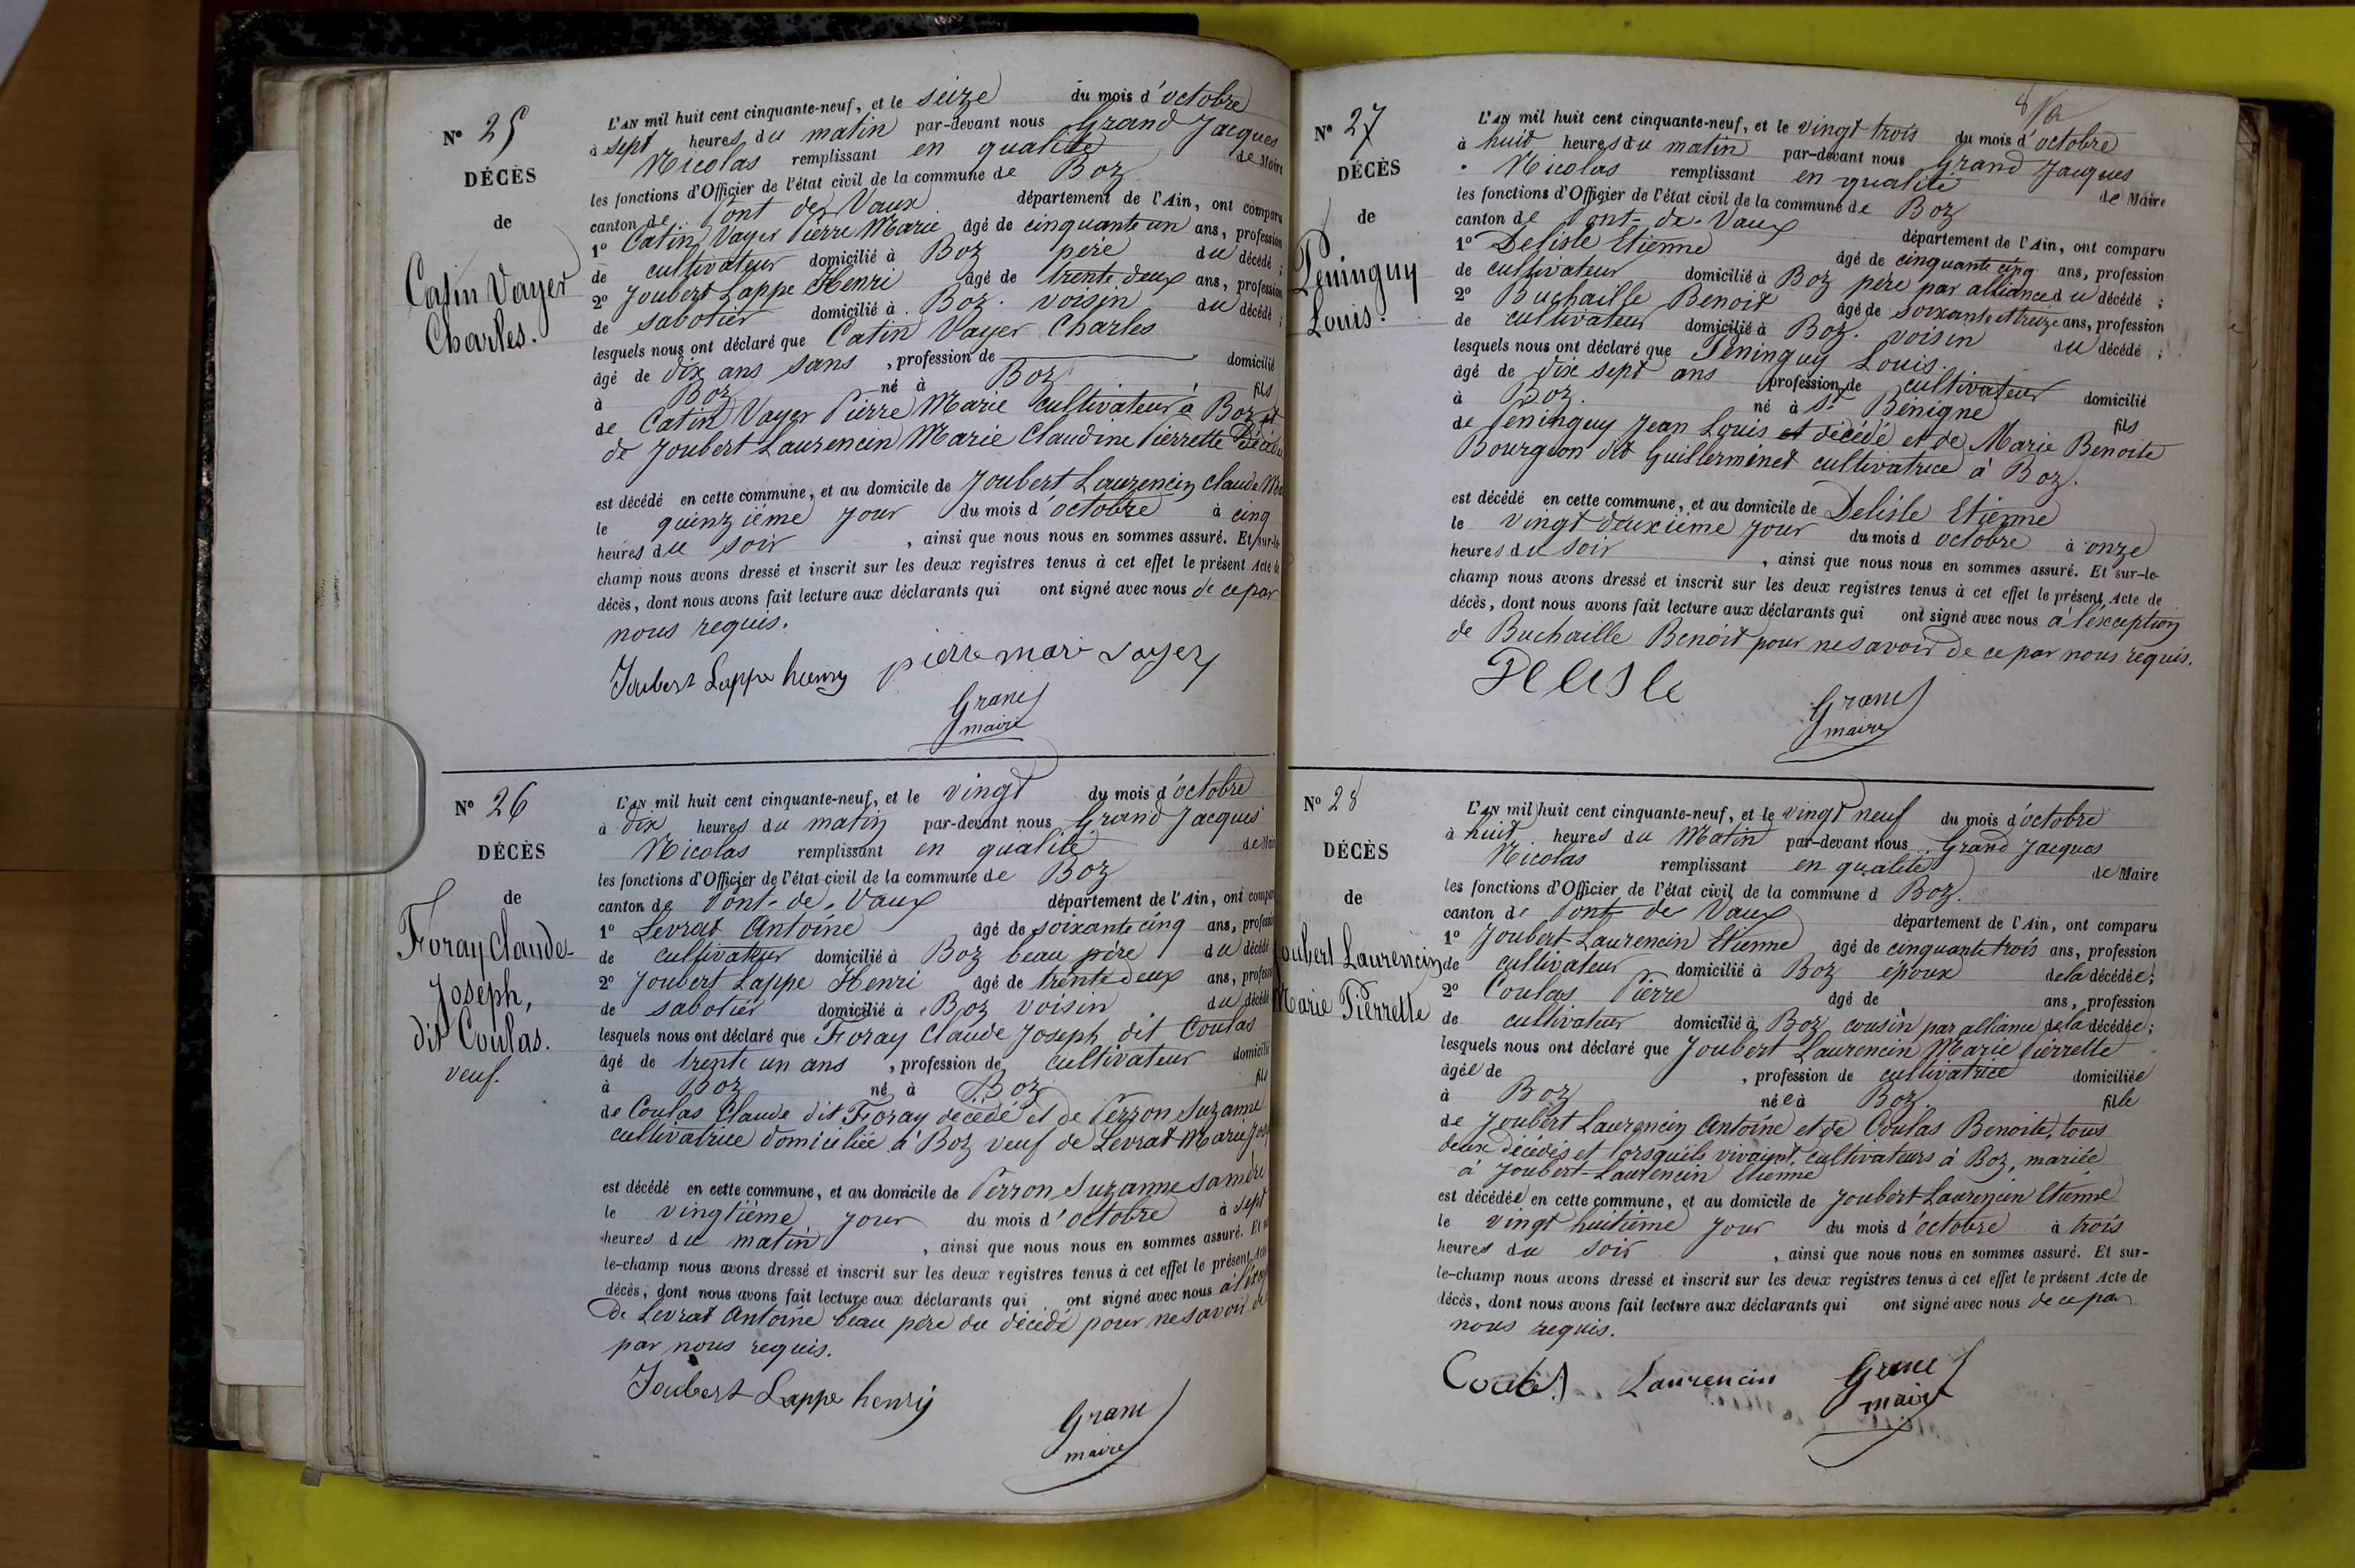 N° 25
DÉCÈS
de
Catin Vayer
Charles.
L'AN mil huit cent cinquante-neuf, et le seize du mois d'octobre
à sept heures du matin par-devant nous Grand Jacques
Nicolas remplissant en qualité de Maire
les fonctions d'Officier de l'état civil de la commune de Boz
canton de Pont de Vaux département de l'Ain, ont comparu
1° Catin Vayer Pierre Marie âgé de cinquante un ans, profession
de cultivateur domicilié à Boz père du décédé ;
2° Joubert Lappe Henri âgé de trente deux ans, profession
de sabotier domicilié à Boz. voisin du décédé ;
lesquels nous ont déclaré que Catin Vayer Charles
âgé de dix ans sans , profession de domicilié
à Boz né à Boz fils
de Catin Vayer Pierre Marie cultivateur à Boz et
de Joubert Laurencin Marie Claudine Pierrette
est décédé en cette commune, et au domicile de Joubert Laurencin Claude
le quinzième jour du mois d'octobre à cinq
heures du soir , ainsi que nous nous en sommes assuré. Et sur-le-
champ nous avons dressé et inscrit sur les deux registres tenus à cet effet le présent Acte de
décès, dont nous avons fait lecture aux déclarants qui ont signé avec nous de ce par
nous requis.
Joubert Lappe henry pierre mari vayer
Grand
maire
N° 26
DÉCÈS
de
Foray Claude-
Joseph,
dit Coulas.
veuf.
L'AN mil huit cent cinquante-neuf, et le vingt du mois d'octobre
à dix heures du matin par-devant nous Grand Jacques
Nicolas remplissant en qualité de Maire
les fonctions d'Officier de l'état civil de la commune de Boz
canton de Pont-de-Vaux département de l'Ain, ont comparu
1° Levrat Antoine âgé de soixante cinq ans, profession
de cultivateur domicilié à Boz beau père du décédé
2° Joubert Lappe Henri âgé de trente deux ans, profession
de sabotier domicilié à Boz voisin du décédé
lesquels nous ont déclaré que Foray Claude Joseph dit Coulas
âgé de trente un ans , profession de cultivateur domicilié
à Boz né à Boz fils
de Coulas Claude dit Foray décédé et de Perron Suzanne
cultivatrice domiciliée à Boz veuf de Levrat Marie
est décédé en cette commune, et au domicile de Perron Suzanne sa mère
le vingtième jour du mois d'octobre à sept
heures du matin , ainsi que nous nous en sommes assuré. Et sur
le-champ nous avons dressé et inscrit sur les deux registres tenus à cet effet le présent Acte
décès, dont nous avons fait lecture aux déclarants qui ont signé avec nous
de Levrat Antoine beau père du décédé pour ne savoir de
par nous requis.
Joubert Lappe henry
Grand
maire
N° 27
DÉCÈS
de
Peninguy
Louis.
L'AN mil huit cent cinquante-neuf, et le vingt trois du mois d'octobre
à huit heures du matin par-devant nous Grand Jacques
Nicolas remplissant en qualité de Maire
les fonctions d'Officier de l'état civil de la commune de Boz
canton de Pont-de-Vaux département de l'Ain, ont comparu
1° Delisle Etienne âgé de cinquante cinq ans, profession
de cultivateur domicilié à Boz père par alliance du décédé ;
2° Buchaille Benoit âgé de soixante et treize ans, profession
de cultivateur domicilié à Boz. voisin du décédé ;
lesquels nous ont déclaré que Peninguy Louis.
âgé de dix sept ans profession de cultivateur domicilié
à Boz. né à St Bénigne fils
de Peninguy Jean Louis et décédé et de Marie Benoite
Bourgeon dit Guillerminet cultivatrice à Boz.
est décédé en cette commune, et au domicile de Delisle Etienne
le vingt deuxième jour du mois d octobre à onze
heures du soir , ainsi que nous nous en sommes assuré. Et sur-le-
champ nous avons dressé et inscrit sur les deux registres tenus à cet effet le présent Acte de
décès, dont nous avons fait lecture aux déclarants qui ont signé avec nous à l'exception
de Buchaille Benoit pour ne savoir de ce par nous requis.
Delisle
Grand
maire
N° 28
DÉCÈS
de
Joubert Laurencin
Marie Pierrette
L'AN mil huit cent cinquante-neuf, et le vingt neuf du mois d'octobre
à huit heures du Matin par-devant nous Grand Jacques
Nicolas remplissant en qualité de Maire
les fonctions d'Officier de l'état civil de la commune d Boz.
canton de Pont de Vaux département de l'Ain, ont comparu
1° Joubert-Laurencin Etienne âgé de cinquante trois ans, profession
de cultivateur domicilié à Boz époux de la décédée ;
2° Coulas Pierre âgé de ans, profession
de cultivateur domicilié à Boz cousin par alliance de la décédée ;
lesquels nous ont déclaré que Joubert Laurencin Marie Pierrette
âgée de , profession de cultivatrice domiciliée
à Boz née à Boz. fille
de Joubert Laurencin Antoine et de Coulas Benoite, tous
deux décédés et lorsquils vivaient cultivateurs à Boz, mariée
à Joubert-Laurencin Etienne
est décédée en cette commune, et au domicile de Joubert-Laurencin Etienne
le vingt huitième jour du mois d'octobre à trois
heures du soir , ainsi que nous nous en sommes assuré. Et sur-
le-champ nous avons dressé et inscrit sur les deux registres tenus à cet effet le présent Acte de
décès, dont nous avons fait lecture aux déclarants qui ont signé avec nous de ce par
nous requis.
Laurencin Grand
maire